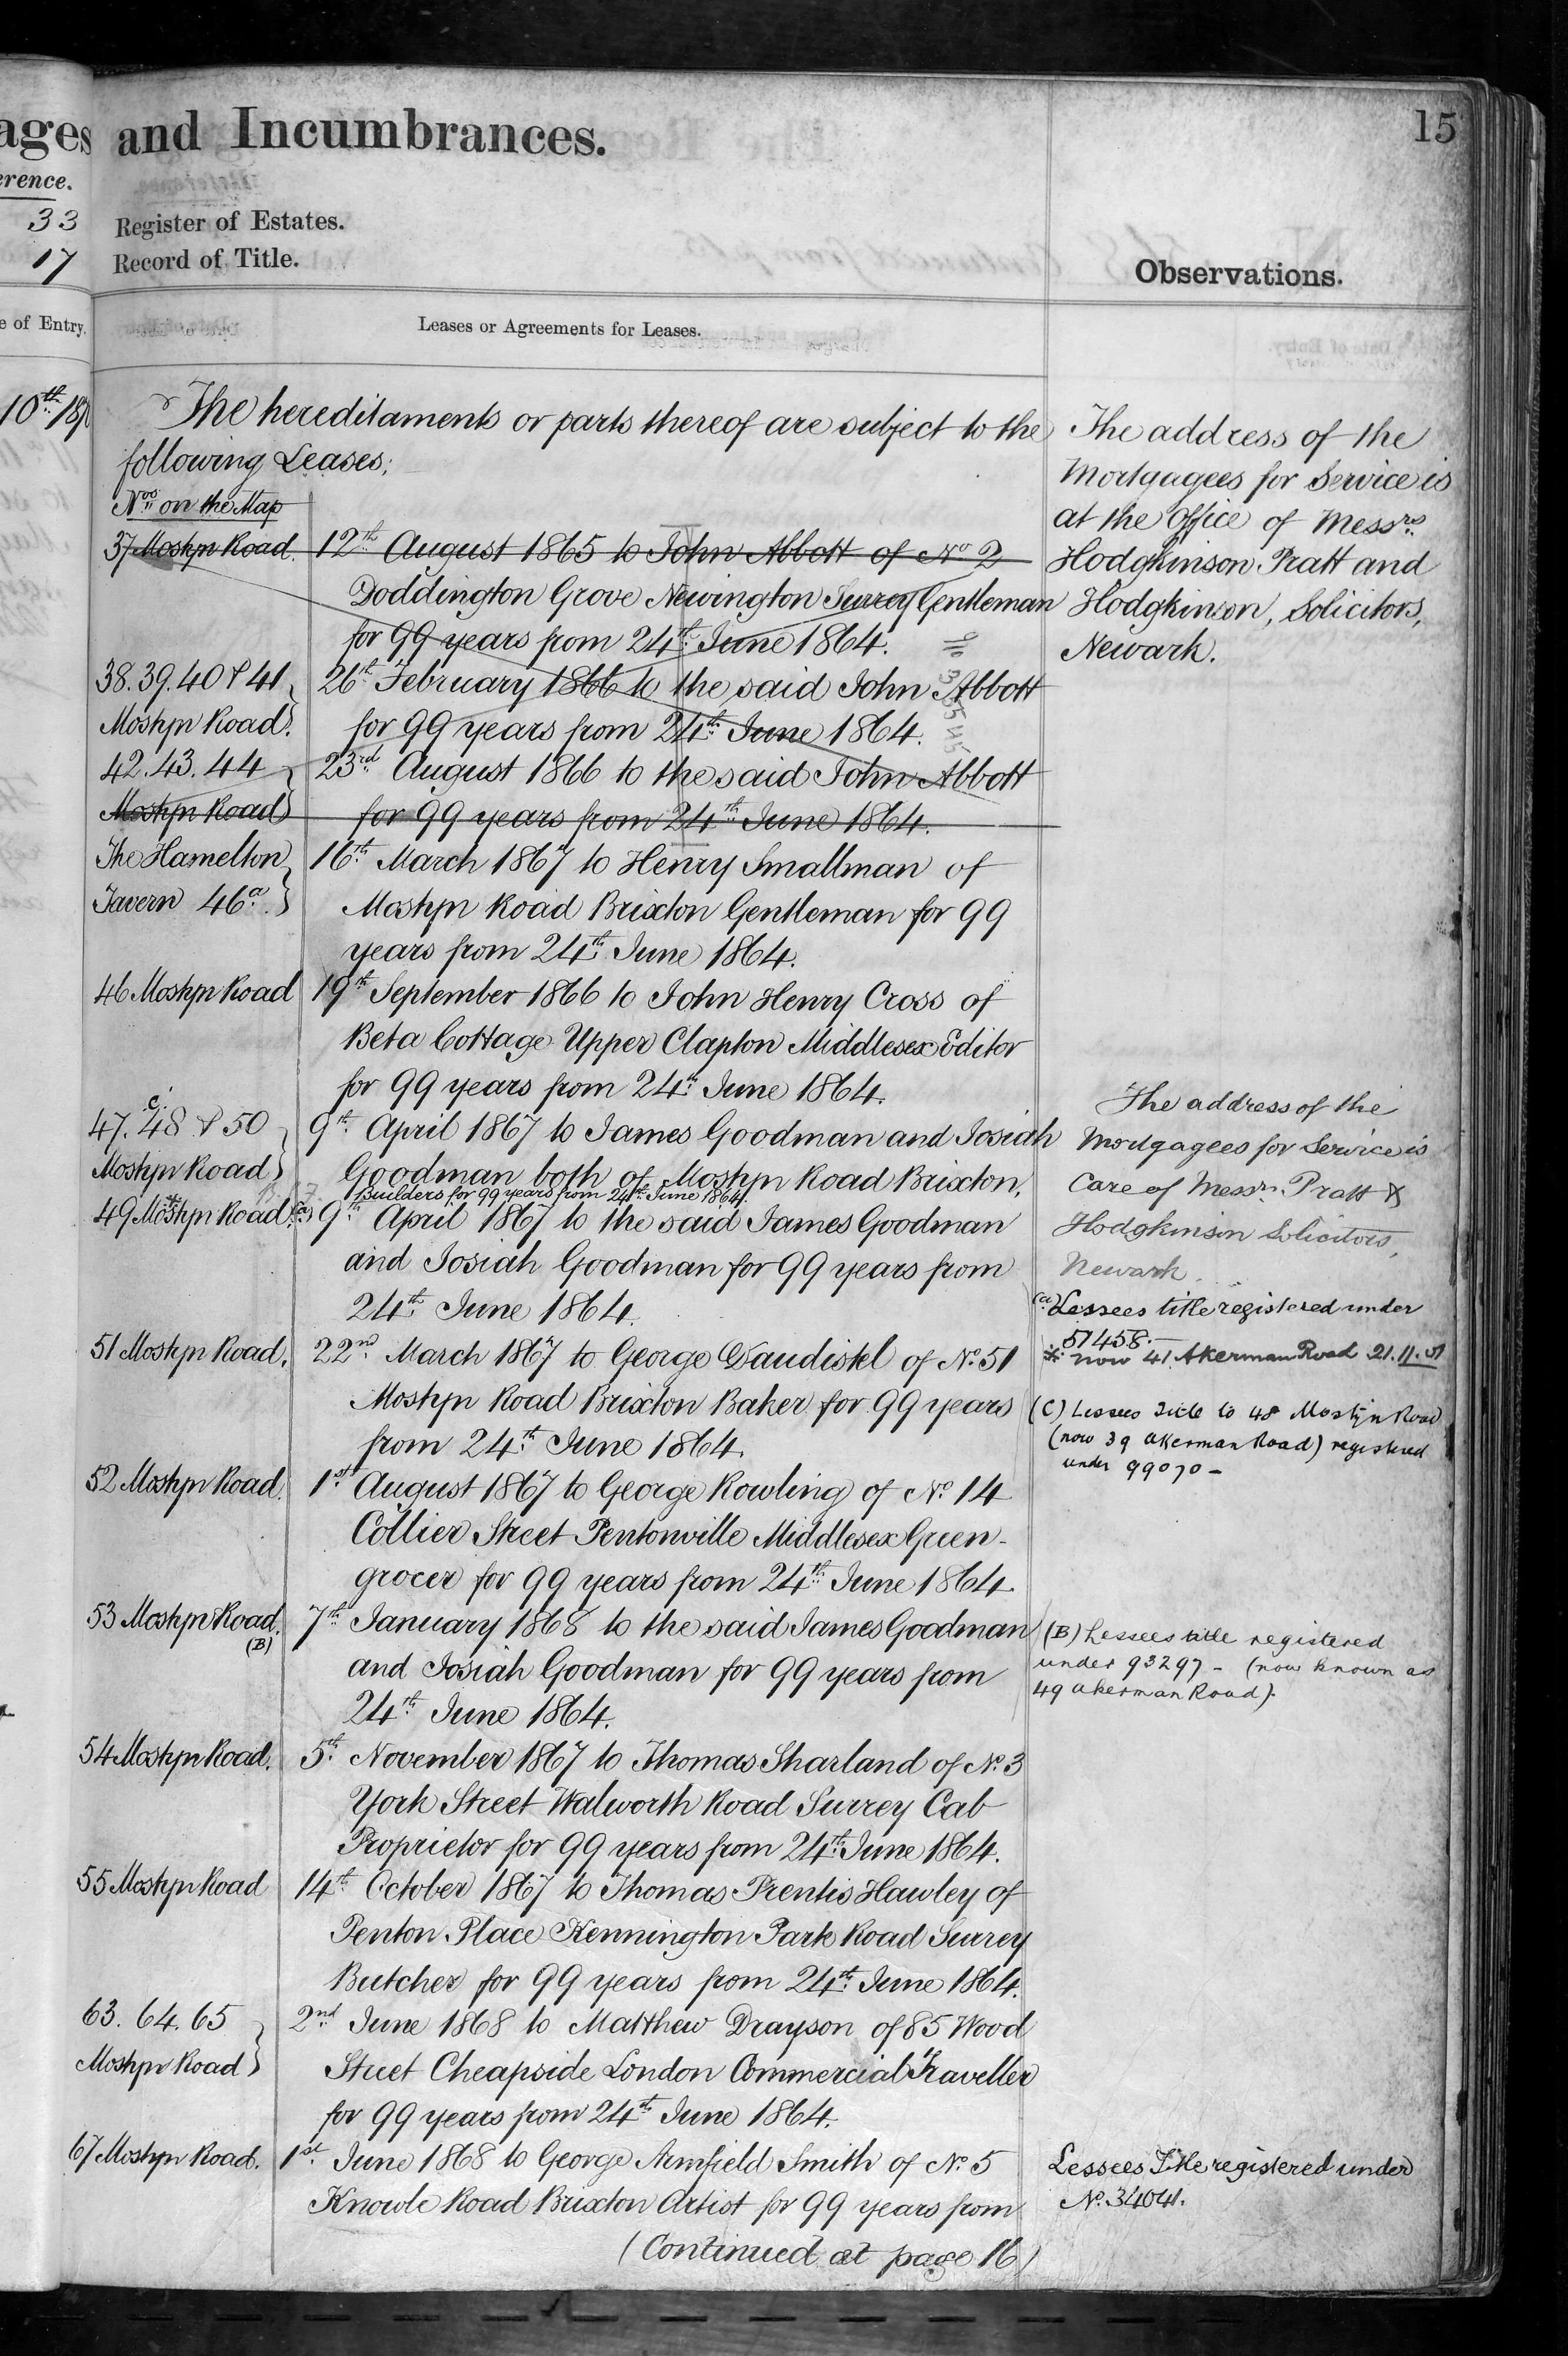 ages and Incumbrances.
15
erence.
33 Register of Estates.
17 Record of Title.
Observations.
e of Entry.
Leases or Agreements for Leases.
10th
The hereditaments or parts thereof are subject to the
following Leases;
Nos. on the Map
37 Mostyn Road. 12th August 1865 to John Abbott of No 2
Doddington Grove Newington Surrey Gentleman
for 99 years from 24th June 1864.
38. 39. 40 & 41 26th February 1866 to the said John Abbott
Mostyn Road. for 99 years from 24th June 1864.
42. 43. 44 23rd August 1866 to the said John Abbott
Mostyn Road for 99 years from 24th June 1864.
The Hamelton 16th March 1867 to Henry Smallman of
Tavern 46a. Mostyn Road Brixton Gentleman for 99
years from 24th June 1864.
46 Mostyn Road 19th September 1866 to John Henry Cross of
Beta Cottage Upper Clapton Middlesex Editor
for 99 years from 24th June 1864.
c
47. 48 & 50 9th April 1867 to James Goodman and Josiah
Mostyn Road Goodman both of Mostyn Road Brixton,
Builders for 99 years from 24th June 1864.
49 Mostyn Road * (a) 9th April 1867 to the said James Goodman
and Josiah Goodman for 99 years from
24th June 1864.
51 Mostyn Road. 22nd March 1867 to George Daudistel of No. 51
Mostyn Road Brixton Baker for 99 years
from 24th June 1864.
52 Mostyn Road. 1st August 1867 to George Rowling of No. 14
Collier Street Pentonville Middlesex Green-
grocer for 99 years from 24th June 1864.
53 Mostyn Road. 7th January 1868 to the said James Goodman
(B)
and Josiah Goodman for 99 years from
24th June 1864.
54 Mostyn Road. 5th November 1867 to Thomas Sharland of No. 3
York Street Walworth Road Surrey Cab
Proprietor for 99 years from 24th June 1864.
55 Mostyn Road 14th October 1867 to Thomas Prentis Hawley of
Penton Place Kennington Park Road Surrey
Butcher for 99 years from 24th June 1864.
63. 64. 65 2nd June 1868 to Matthew Drayson of 85 Wood
Mostyn Road Street Cheapside London Commercial Traveller
for 99 years from 24th June 1864.
67 Mostyn Road. 1st June 1868 to George Armfield Smith of No. 5
Knowle Road Brixton Artist for 99 years from
(Continued at page 16)
The address of the
Mortgagees for Service is
at the Office of Messrs.
Hodgkinson Pratt and
Hodgkinson, Solicitors,
Newark.
The address of the
Mortgagees for Service is
Care of Messrs. Pratt &
Hodgkinson Solicitors,
Newark.
(a) Lessees title registered under
51458.
* now 41 Akerman Road 21.11.01
(C) Lessees title to 48 Mostyn Road
(now 39 Akerman Road) registered
under 99070 -
(B) Lessees title registered
under 93297 - (now known as
49 Akerman Road).
Lessees Title registered under
No. 34041.